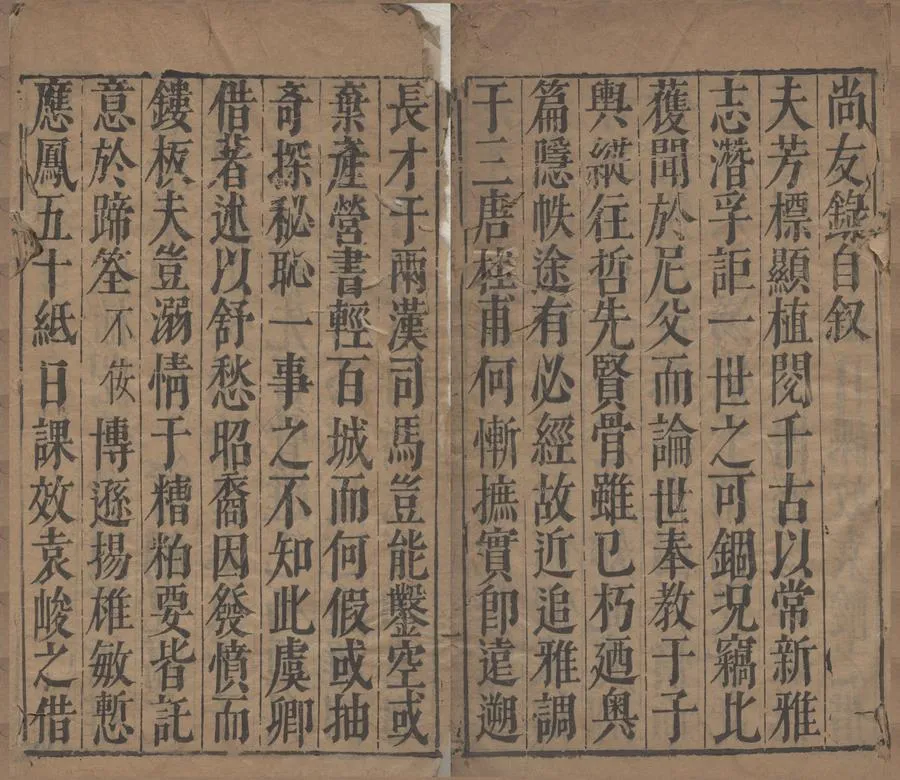 尚友錄自叙
夫芳標顯植閱千古以常新雅
志潛孚詎一世之可錮況竊比
獲聞於尼父而論世奉教于子
輿縱徃哲先賢骨雖已朽廼奥
篇隱帙途有必經故近追雅調
于三唐桎甫何慚摭實卽遠遡
長才于兩漢司馬豈能鑿空或
棄產營書輕百城而何假或抽
奇探秘恥一事之不知此虞卿
借著述以舒愁昭裔因發憤而
鏤板夫豈溺情于糟粕要皆託
意於蹄筌不佞博遜揚雄敏慙
應鳳五十紙日課效袁峻之借